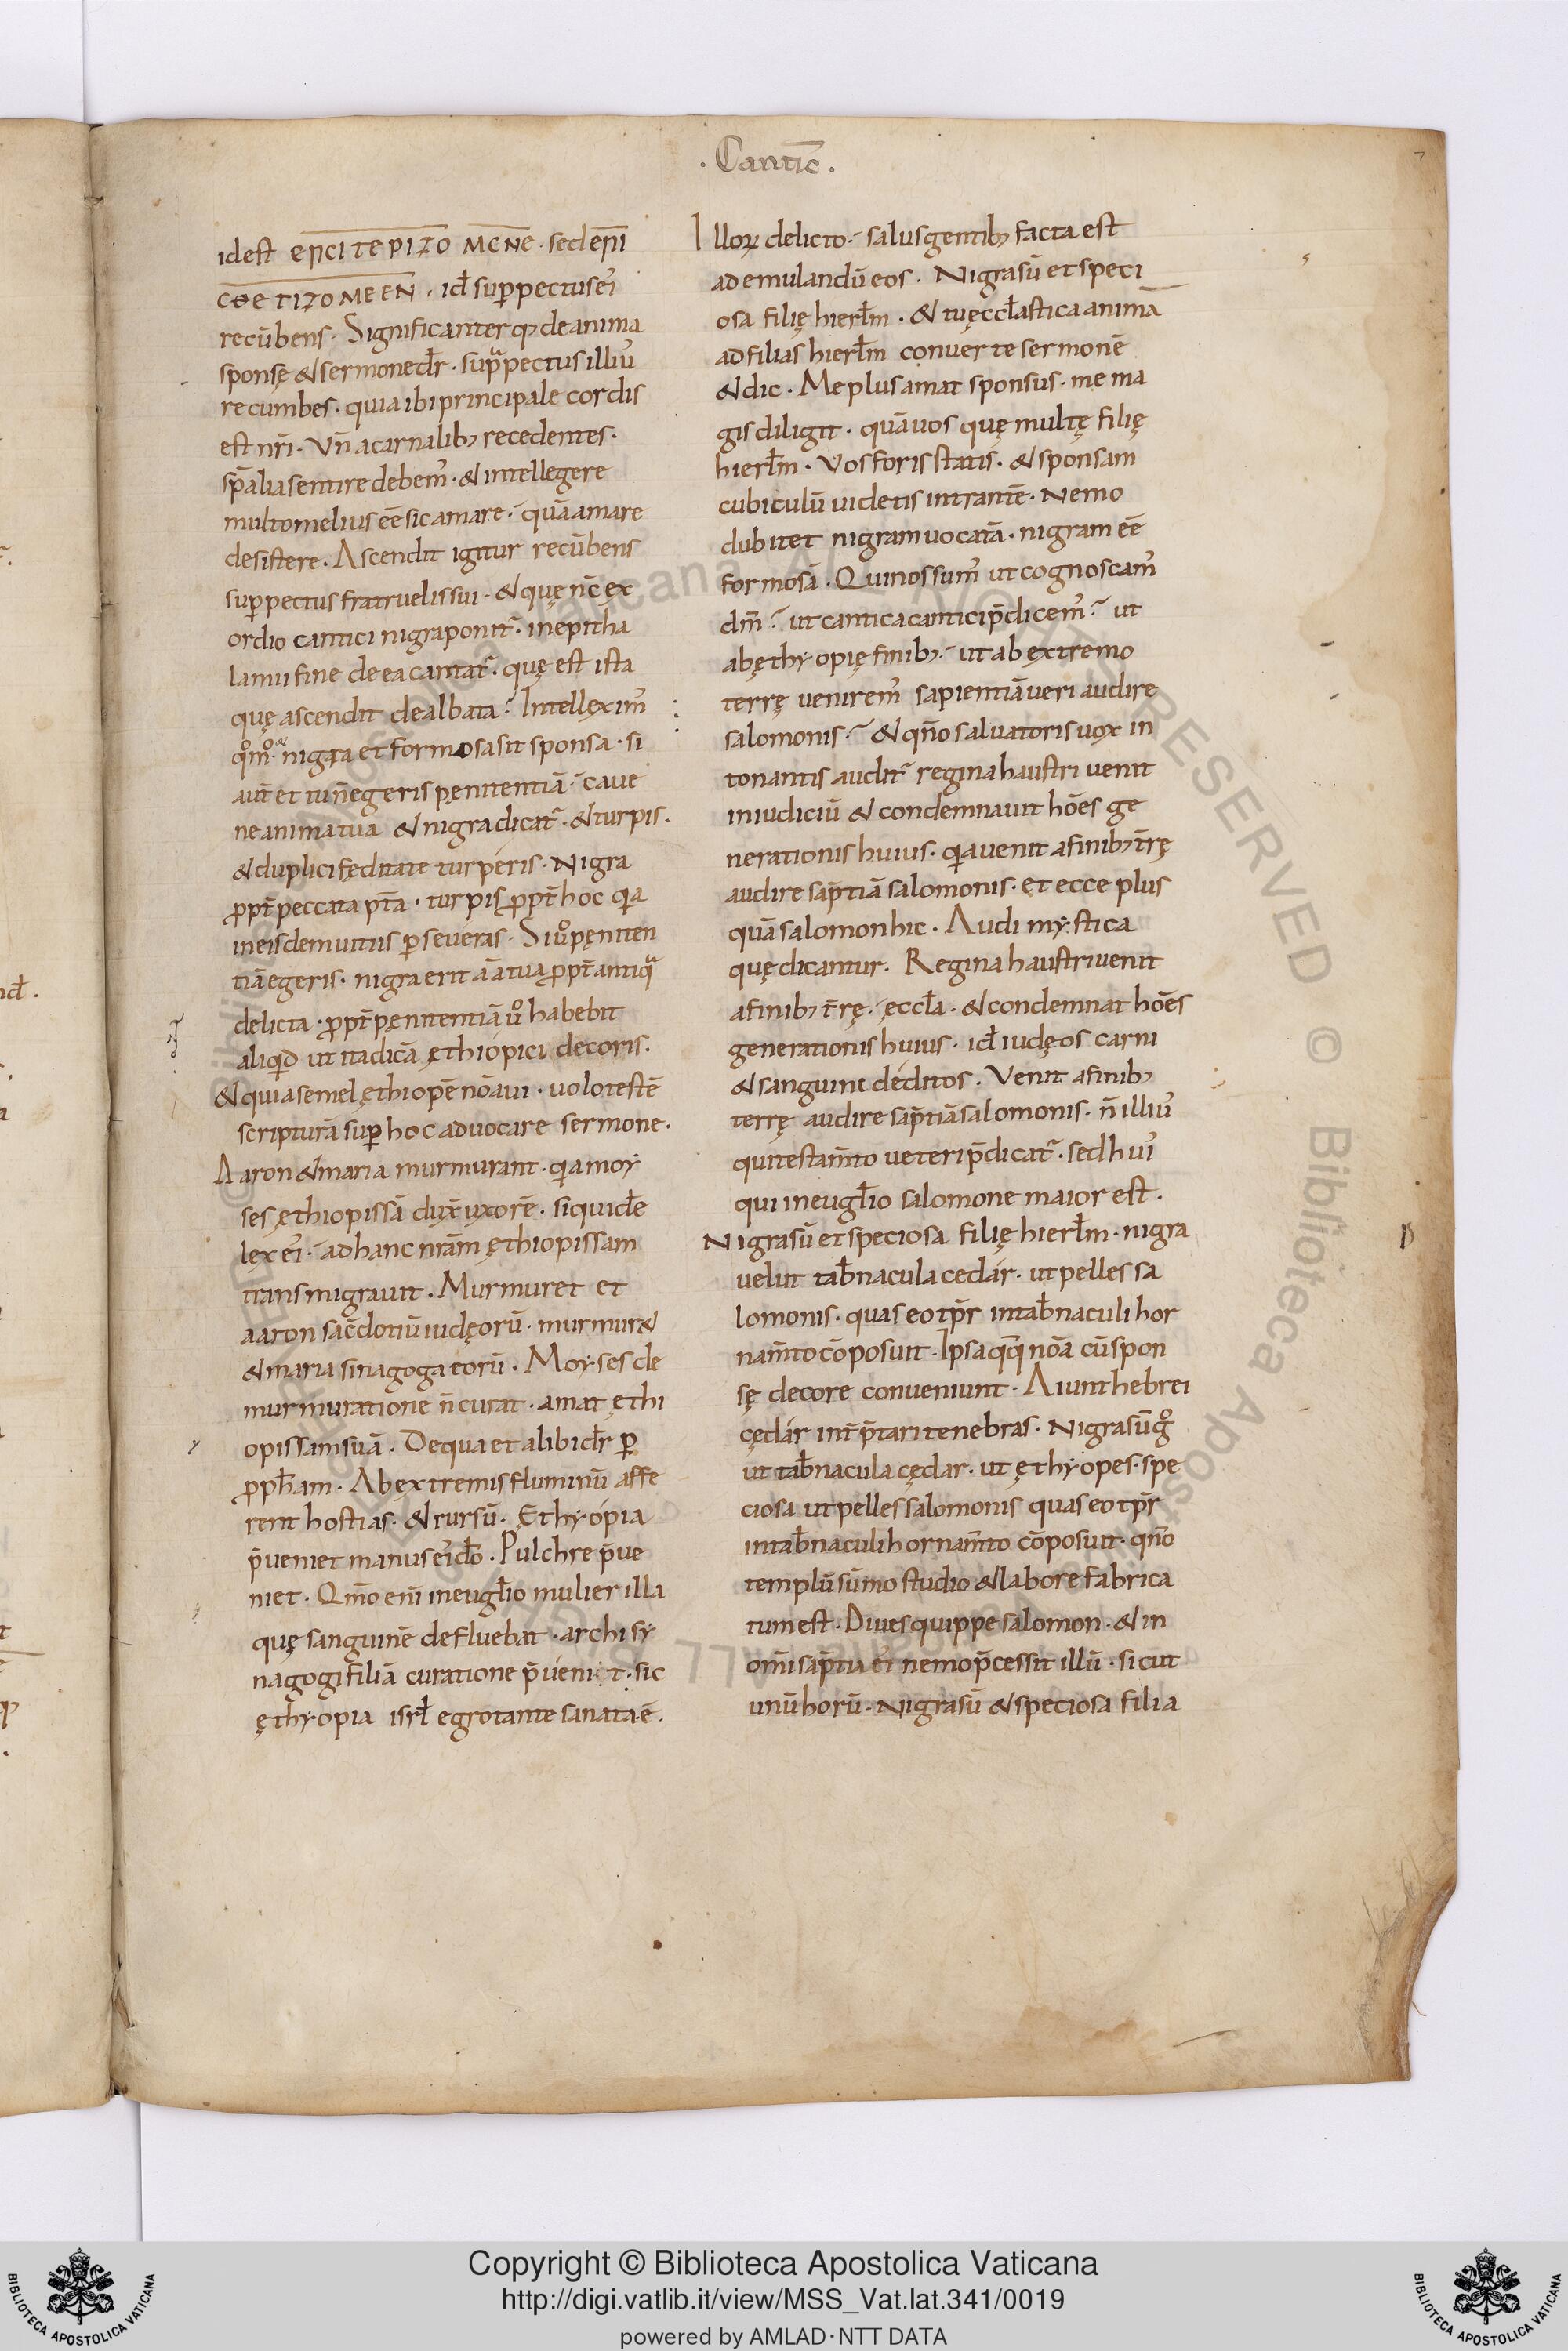 · Cantic̅ ·
id est EPICITEPIZOMENE · sed EPI
CΘETIZOMEEN · id̅ sup̱ pectus ei᾽
recu̅bens · Significanter q; de anima
sponsę & sermone dr̅ · supͣ pectus illiu᾽
recumbes · quia ibi principale cordis
est nr̅i · Vn̅ a carnalib; recedentes ·
sp̅alia sentire debem᾽ · & intellegere
multo melius ee̅ sic amare · qua̅ amare
desistere · Ascendit igitur recu̅bens
sup̱ pectus fratruelis sui · & quę nc̅ ex
ordio cantici nigra ponit᾽ · in epitha
lamii fine de ea cantat᾽ · quę est ista
quę ascendit dealbata? Intellexim᾽
qͦmͦ nigra et formosa sit sponsa · si
aut̅ et tu n̅ egeris pęnitentia̅ · cave
ne anima tua & nigra dicat᾽ · & turpis ·
& duplici fęditate turperis · Nigra
ꝓpt̅ peccata pt̅a · turpis ꝓpt̅ hoc qa
in eisdem uitiis ꝑseveras · Si uͦ pęniten
tia̅ egeris · nigra erit a̅a tua ꝓpt̅ antiqͣ
delicta · ꝓpt̅ pęnitentia̅ uͦ habebit
aliqid ut ita dica̅ ęthiopici decoris ·
& quia semel ęthiope̅ no̅avi · uolo teste̅
scriptura̅ suꝑ hoc advocare sermone ·
Aaron & maria murmurant · qia moy
ses ęthiopissa̅ dux̅ uxore̅ · siquide̅
lex ei᾽ · ad hanc nr̅am ęthiopissam
transmigravit · Murmuret et
aaron sac̅dotiu̅ iudęoru̅ · murmur&
& maria sinagoga eoru̅ · Moyses de
murmuratione n̅ curat · amat ęthi
opissam sua̅ · De qua et alibi dr̅ ꝑ
ꝓph̅am · Ab extremis fluminu̅ affe
rent hostias · & rursu̅ · Ęthyopia
p̅ueniet manus ei᾽ do̅ · Pulchre p̅ue
niet · Qm̅o eni̅ in eugl̅io mulier illa
quę sanguine̅ defluebat · archisy
nagogi filia̅ curatione p̅ueni t · sic
ęthyopia isrl̅ egrotante sanata e̅ ·
Illoꝝ delicto · salus gentib; facta est
ad emulandu̅ eos · Nigra su̅ et speci
osa filię hierl̅m · & tu ęccl̅astica anima
ad filias hierl̅m converte sermone̅
& dic · Me plus amat sponsus · me ma
gis diligit · qua̅ uos quę multę filię
hierl̅m · Vos foris statis · & sponsam
cubiculu̅ uidetis intrante̅ · Nemo
dubitet nigram uocata̅ · nigram ee̅
formosa̅ · Qui nos sum᾽ ut cognoscam᾽
dm̅? ut cantica cantici p̅dicem᾽? ut
ab ęthyopię finib; · ut ab extremo
terrę venirem᾽ sapientia̅ ueri audire
salomonis · & qn̅o salvatoris uox in
tonantis audit᾽ regina haustri venit
in iudiciu̅ & condemnavit ho̅es ge
nerationis huius · qia venit a finib; tr̅ę
audire sap̅tia̅ salomonis · et ecce plus
qua̅ salomon hic · Audi mystica
quę dicantur · Regina haustri venit
a finib; tr̅ę · ęccl̅a · & condemnat ho̅es
generationis huius · id̅ iudęos carni
& sanguini deditos · Venit a finib;
terrę audire sap̅tia̅ salomonis · n̅ illiu᾽
qui testam̅to veteri p̅dicat᾽ · sed hui᾽
qui in eugl̅io salomone maior est ·
Nigra su̅ et speciosa filię hierl̅m · nigra
velut tab̅nacula cedar · ut pelles sa
lomonis · quas eo tp̅r in tab̅naculi hor
nam̅to co̅posuit · Ipsa qq̅ no̅a cu̅ spon
sę decore conveniunt · Aiunt hebrei
cędar int̅p̅tari tenebras · Nigra su̅ gͦ
ut tab̅nacula cędar · ut ęthyopes · spe
ciosa ut pelles salomonis quas eo tp̅r
in tab̅naculi hornam̅to co̅posuit · qn̅o
templu̅ su̅mo studio & labore fabrica
tum est · Dives quippe salomon · & in
om̅i sap̅tia ei᾽ nemo p̅cessit illu̅ · sicut
unu̅ horu̅ · Nigra su̅ & speciosa filia
Copyright © Biblioteca Apostolica Vaticana
http://digi.vatlib.it/view/MSS_Vat.lat.341/0019
powered by AMLAD·NTT DATA
BIBLIOTECA APOSTOLICA VATICANA
BIBLIOTECA APOSTOLICA VATICANA